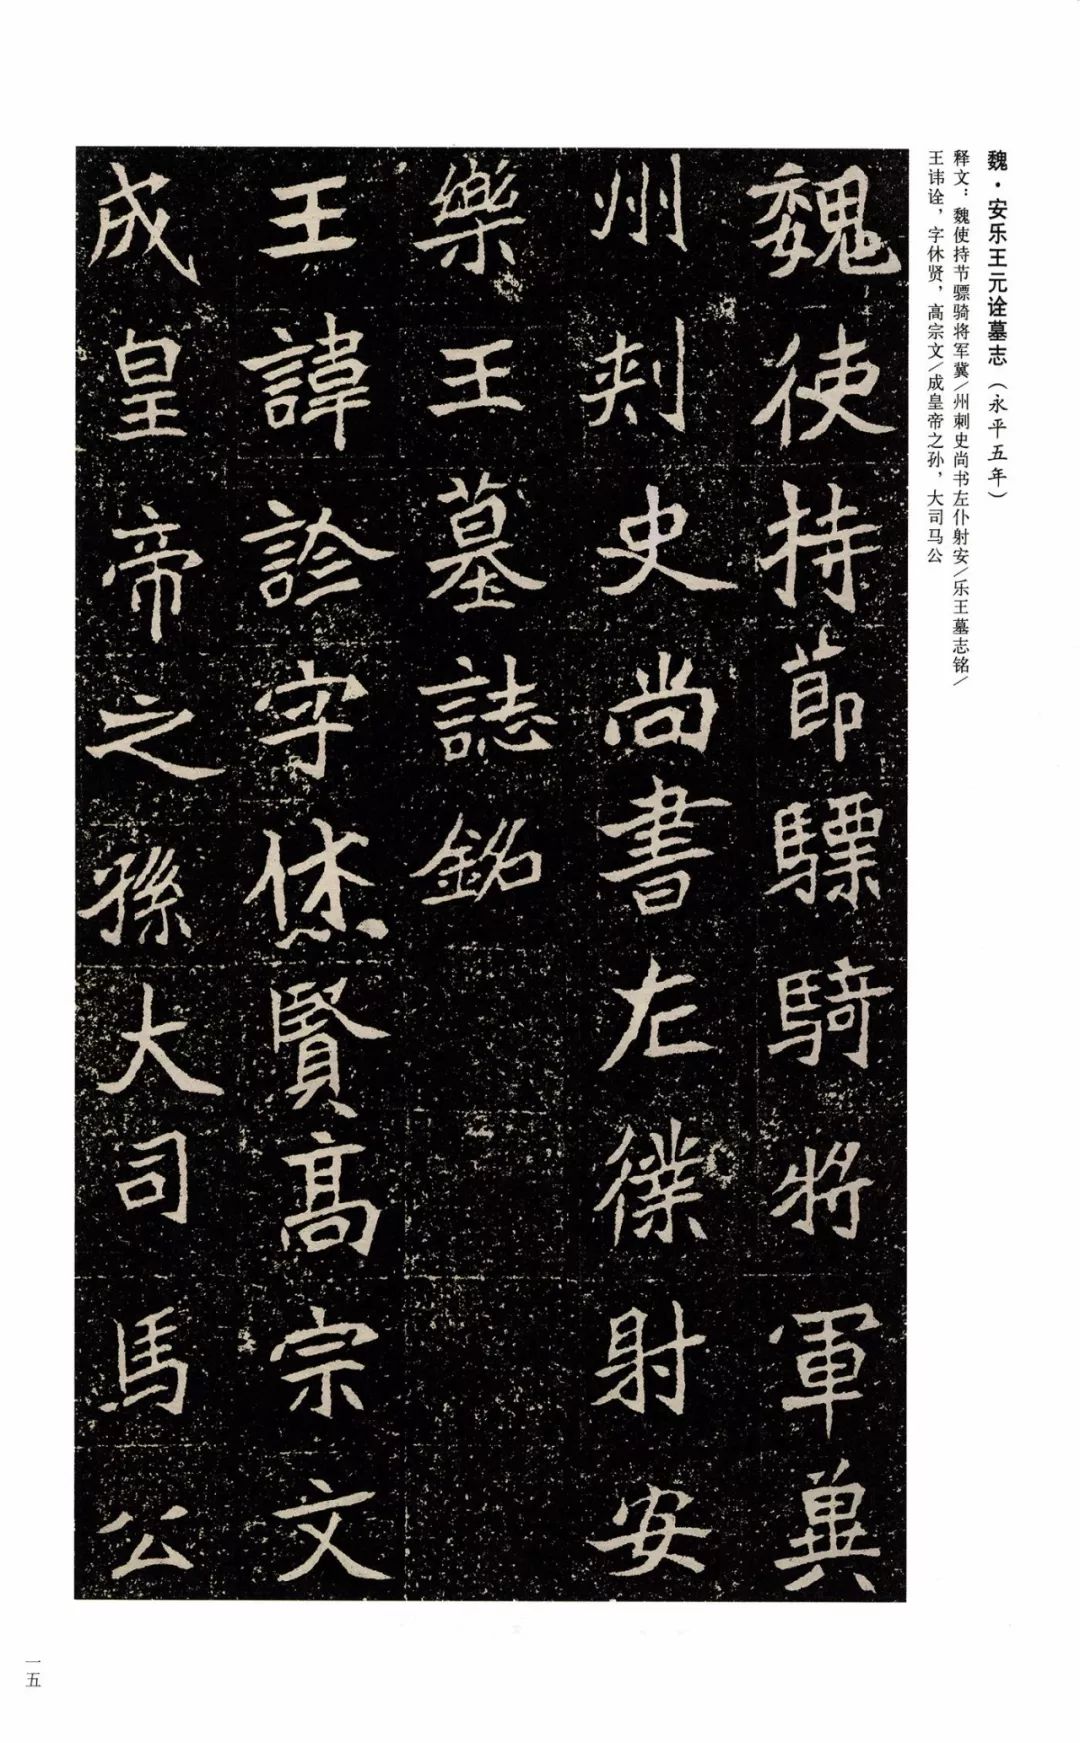 魏·安乐王元诠墓志（永平五年）
释文：魏使持节骠骑将军冀/州刺史尚书左仆射安/乐王墓志铭/
王讳诠，字休贤，高宗文/成皇帝之孙，大司马公
魏使持節驃騎将軍冀
州刾史尚書左僕射安
樂王墓誌銘
王諱詮字休賢高宗文
成皇帝之孫大司馬公
一五